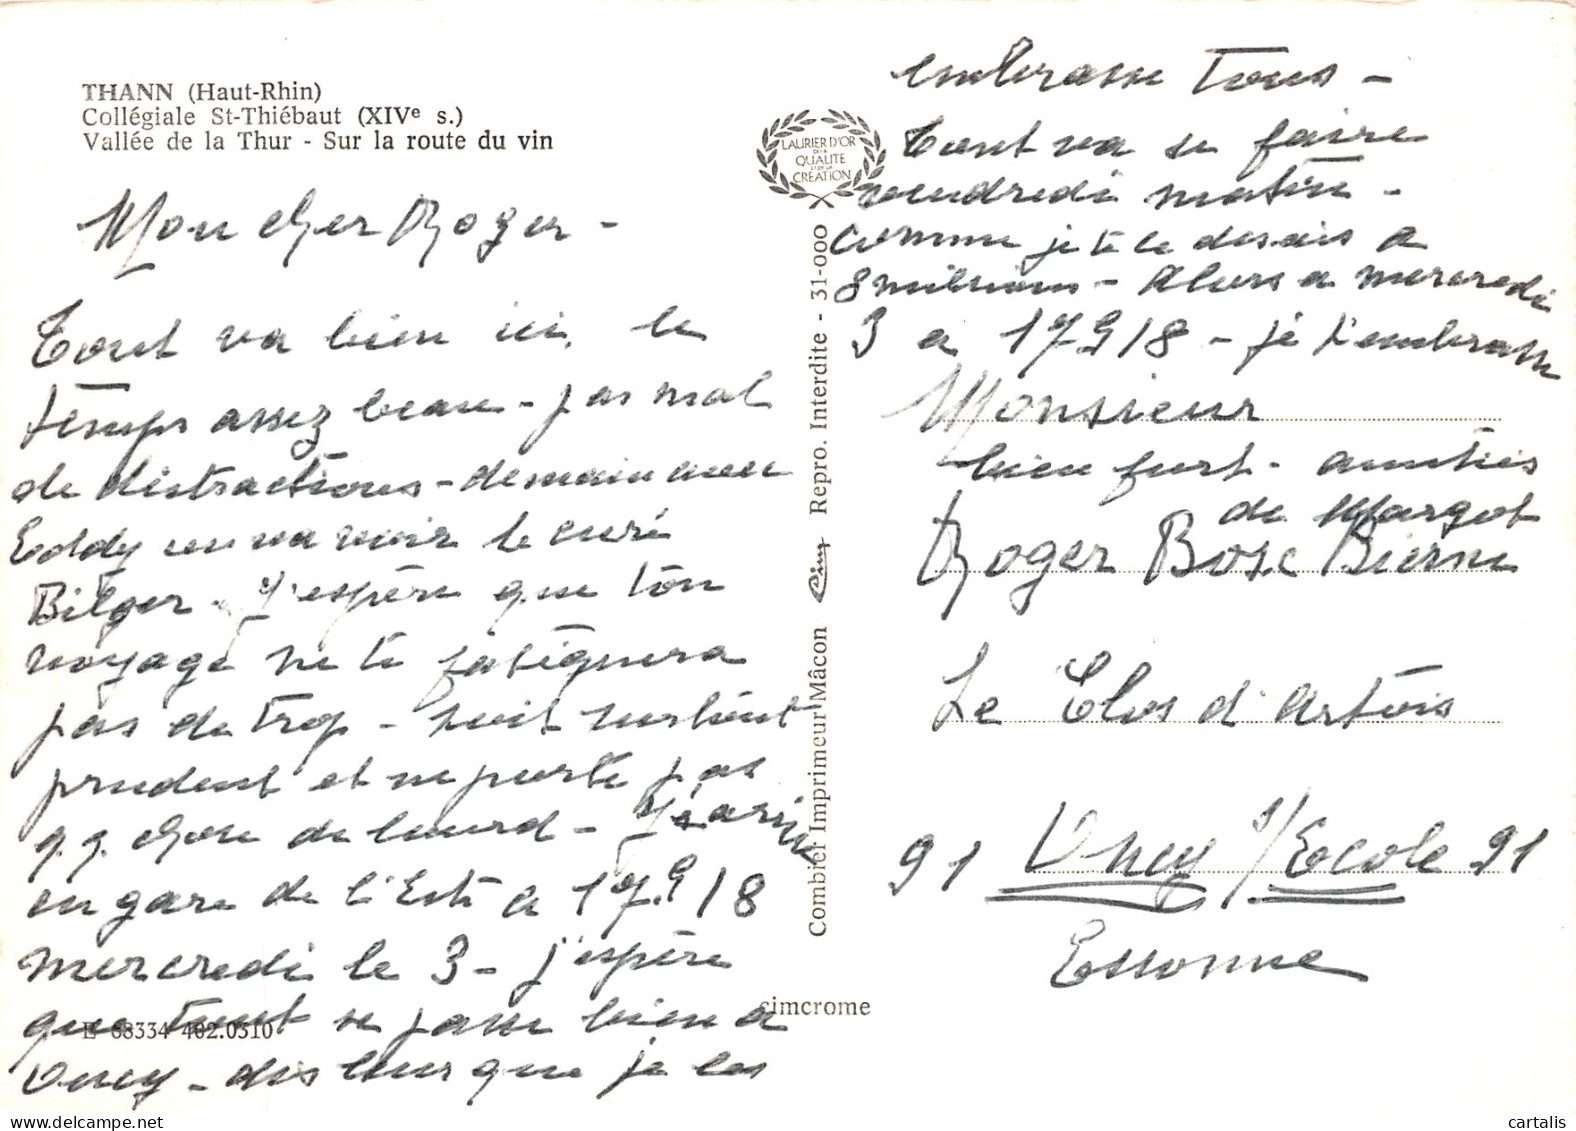 THANN (Haut-Rhin)
Collégiale St-Thiébaut (XIVe s.)
Vallée de la Thur - Sur la route du vin
Mon cher Roger -
Tout va bien ici, le
temps assez beau - pas mal
de distractions - demain avec
Eddy on va voir le curé
Bilger - J'espère que ton
voyage ne te fatiguera
pas de trop - soit surtout
prudent et ne porte pas
q.q. chose de lourd - J'arrive
en gare de l'Est a 17 9/18
mercredi le 3 - j'espère
que tout se passe bien a
Oncy - dis leur que je les
E 68334 402.0310
cimcrome
Combier Imprimeur Mâcon Cim Repro. Interdite - 31-000
LAURIER D'OR
DE LA
QUALITÉ
ET DE LA
CRÉATION
embrasse Tous -
Tout va se faire
vendredi matin -
comme je te le disais a
8 millions - Alors a mercredi
3 a 17 9/18 - je t'embrasse
Monsieur
bien fort - amitiés
de Margot
Roger Bosc Bierne
Le Clos d'Artois
91 Oncy s/Ecole 91
Essonne
cartalis